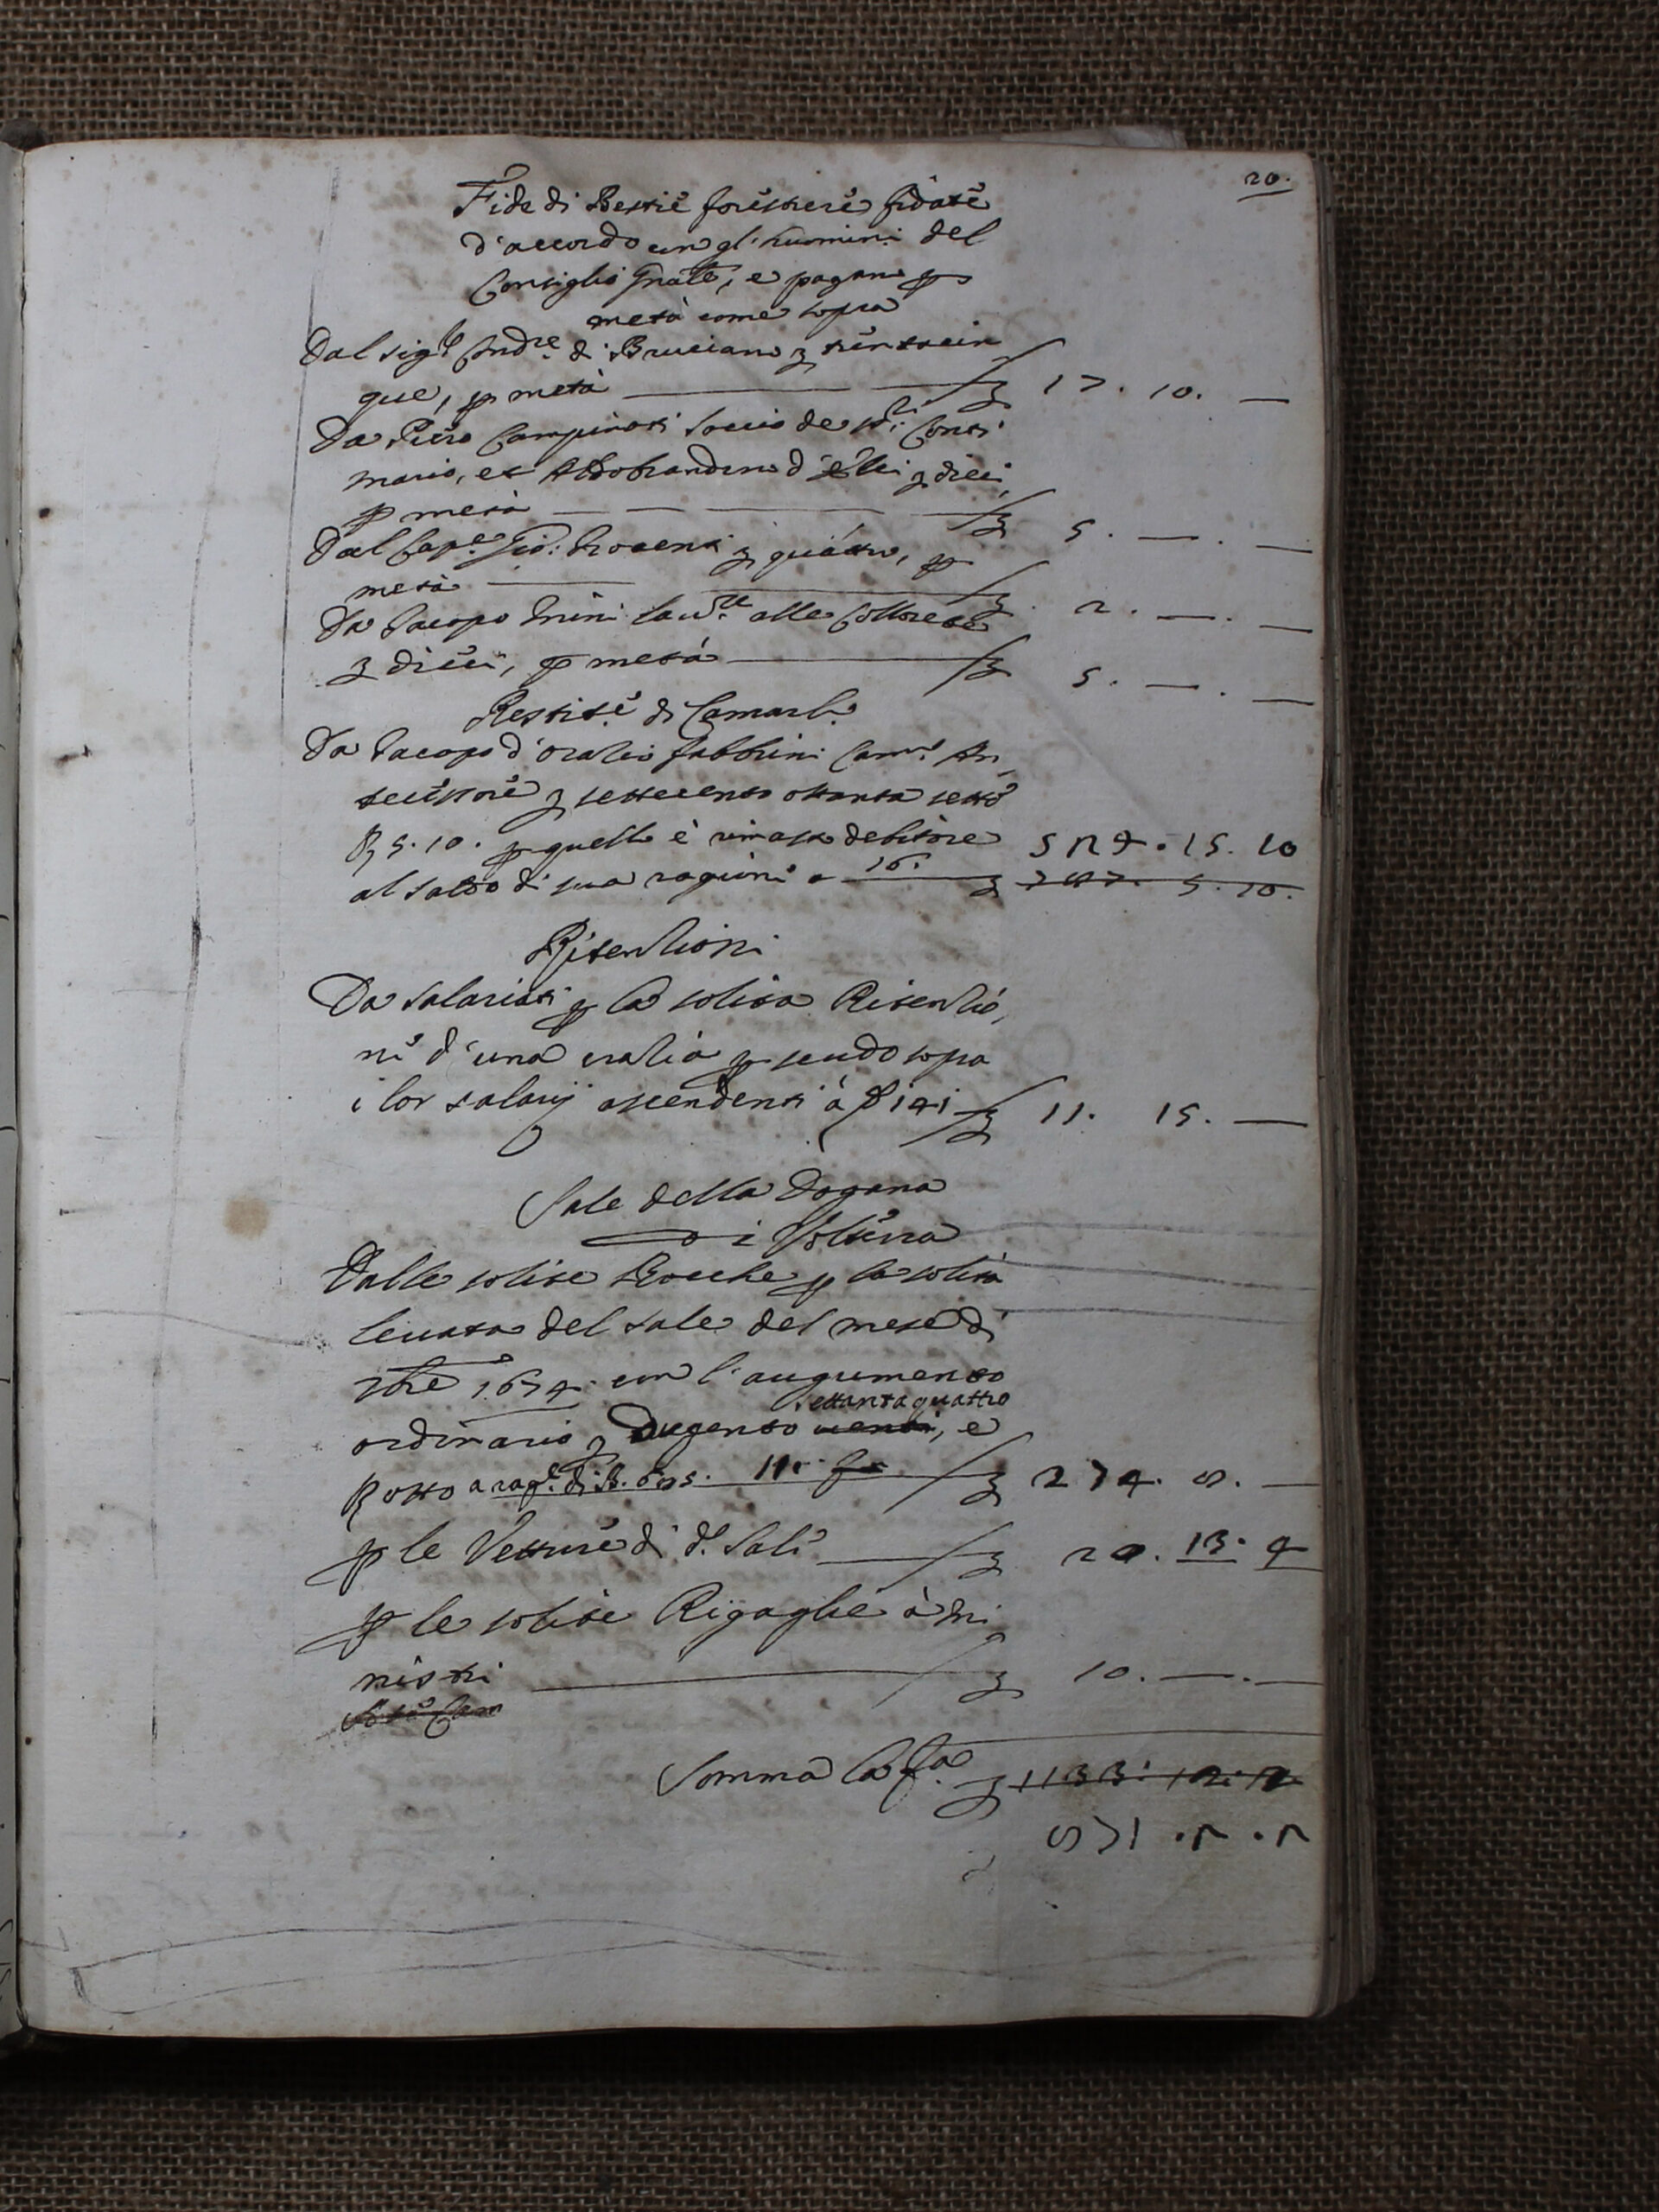 20.
Fide di Bestie forestiere fidate
d'accordo con gl'huomini del
Consiglio Gnãle, e pagano p
metà come sopra
Dal Sigr Andre. di Bruciano £ trentacin
que, p metà £ 17. 10. —
Da Piero Campinoti Soccio de Conti
Mario, et Aldobrandino d'Elci £ dieci,
p metà £ 5. —. —
Dal Cape. Gio: £ quattro, p
metà £ 2. —. —
Da Iacopo alle
£ dieci, p metà £ 5. —. —
Restite di Camarli.
Da Iacopo d'Oratio Fabbrini Camo. An
tecessore £ settecento ottanta sette
ß 5. 10. p quelli è rimasto debitore 524. 15. 10
al saldo di sua ragioni a 16. £ 787. 5. 10.
Ritentioni
Da Salariati p la solita Ritentio,
ne d'una cratia p scudo sopra
i lor salarij ascendenti à £ 11. 15. —
Sale della Dogana
di Volterra
Dalle solite Bocche p la solita
levata del sale del mese di
1674. con l'augumento
settantaquattro
ordinario £ Dugento venti, e
ß otto a ragе. di £ 274. 8. —
p le Vetture di do. Sale £ 20. 13. 4
p le solite Rigaglie à Mi
nistri £ 10. —. —
Somma la fa. £ 1133. 12. 2
871. 2. 2